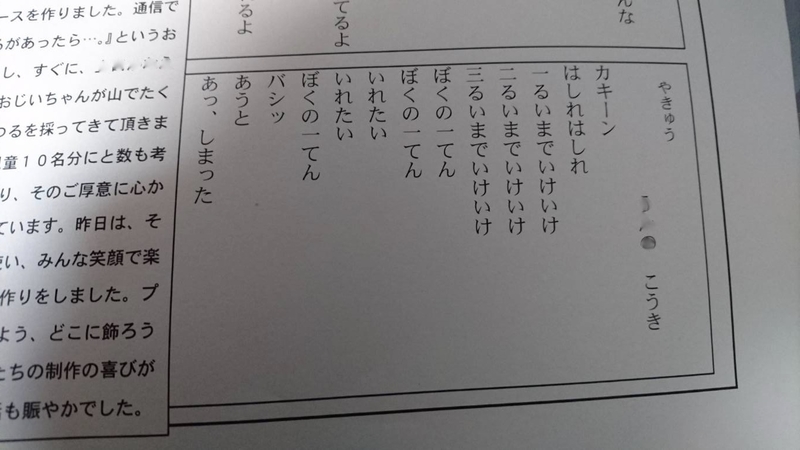 んな
てるよ
るよ
やきゅう
こうき
カキーン
はしれはしれ
一るいまでいけいけ
二るいまでいけいけ
三るいまでいけいけ
ぼくの一てん
ぼくの一てん
いれたい
いれたい
ぼくの一てん
バシッ
あうと
あっ、しまった
ースを作りました。通信で
があったら…。』というお
し、すぐに、
おじいちゃんが山でたく
つるを採ってきて頂きま
童１０名分にと数も考
り、そのご厚意に心か
ています。昨日は、そ
い、みんな笑顔で楽
作りをしました。プ
よう、どこに飾ろう
たちの制作の喜びが
も賑やかでした。